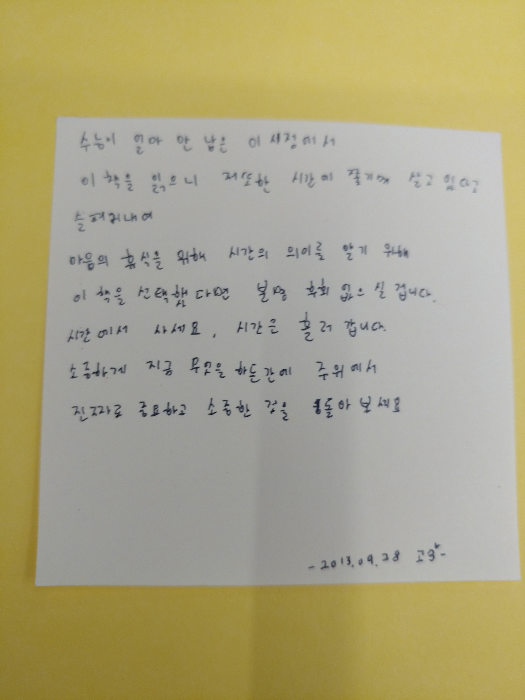 수능이 얼마 안 남은 이 시점에서
이 책을 읽으니 저또한 시간에 쫓기며 살고 있다고
마음의 휴식을 위해 시간의 의미를 알기 위해
이 책을 선택함다면 분명 후회 없으실 겁니다.
시간에서 사세요, 시간은 흘러 갑니다.
소중하게 지금 무엇을 하든간에 주위에서
진짜로 중요하고 소중한 것을 돌아보세요
- 2013.09.28 고3 -